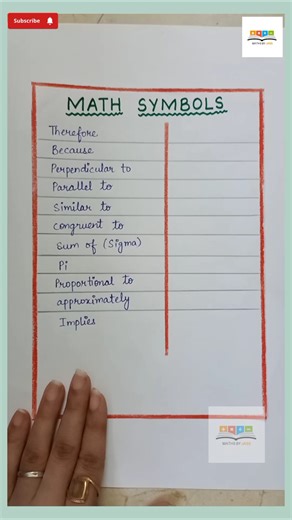 Subscribe
MATH SYMBOLS
Therefore
Because
Perpendicular to
Parallel to
Similar to
congruent to
Sum of (Sigma)
Pi
Proportional to
approximately
Implies